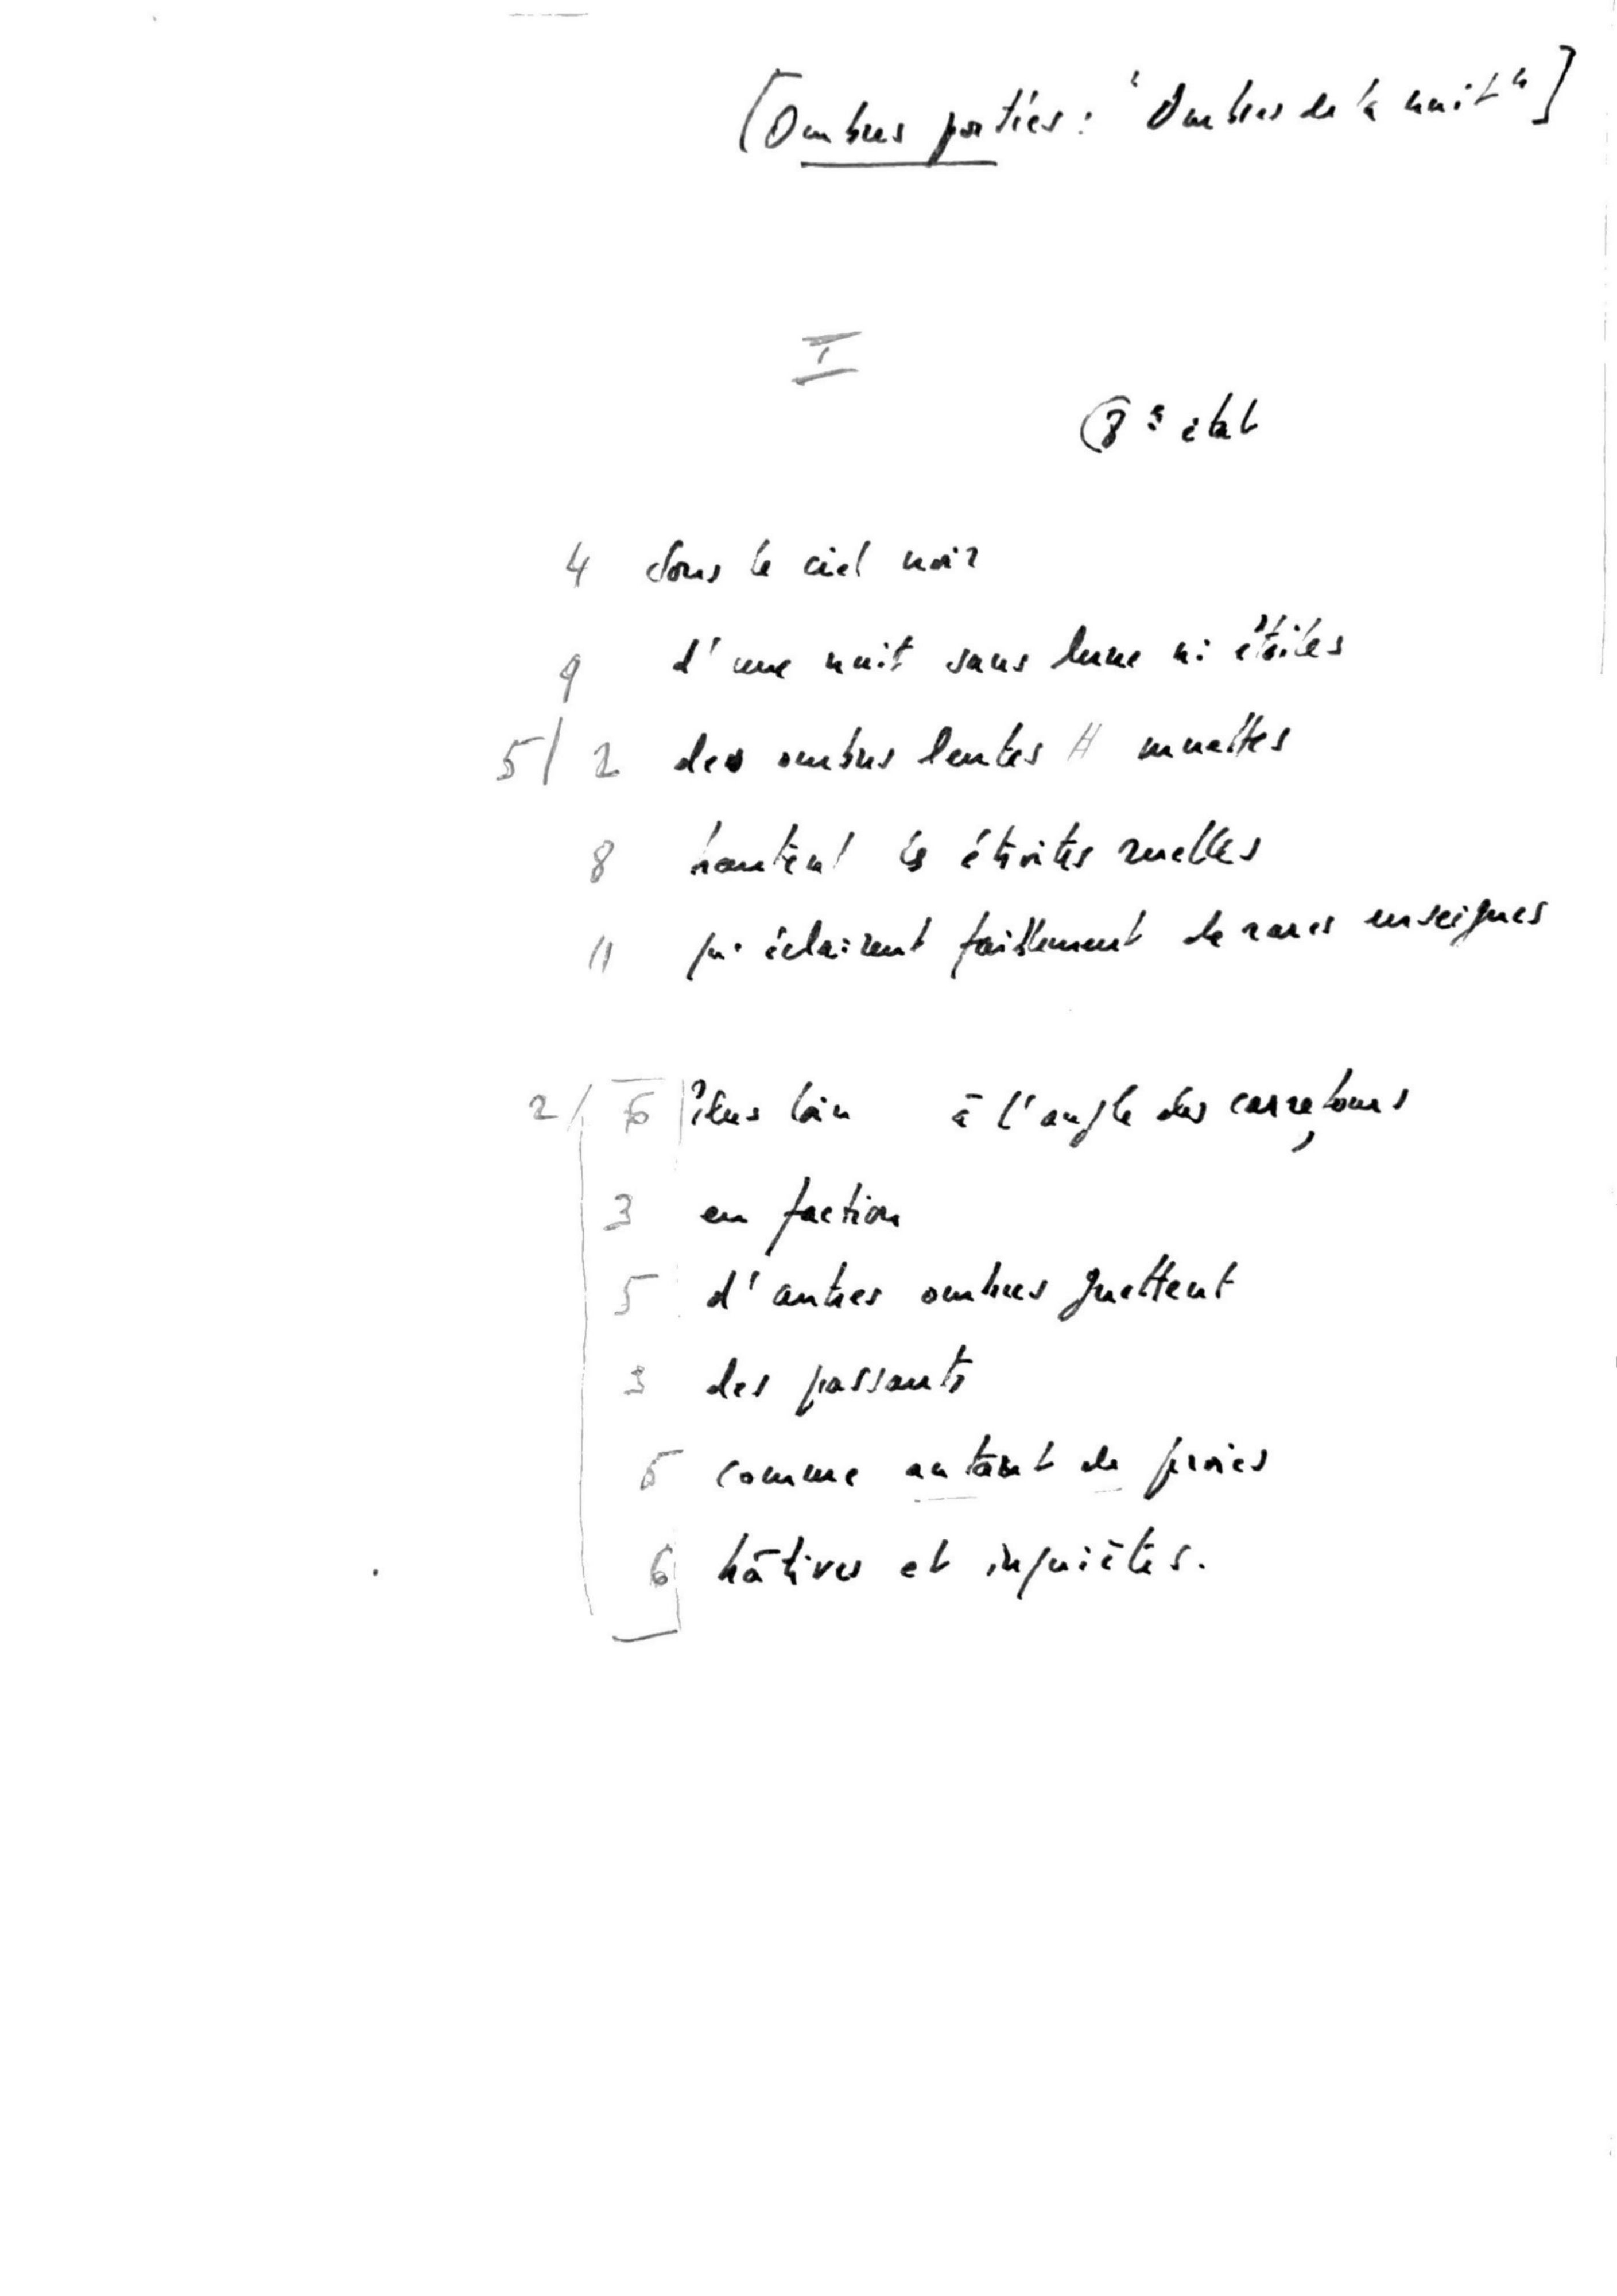 [Ombres portées : "Ombres de la nuit"]
I
8e état
4 sous le ciel noir
9 d'une nuit sans lune ni étoiles
5/2 des ombres lentes // muettes
8 hantent les étroites ruelles
11 qu'éclairent faiblement de rares enseignes
2/6 Plus loin à l'angle des carrefours
3 en faction
5 d'autres ombres guettent
3 des passants
5 comme autant de proies
6 hâtives et inquiètes.